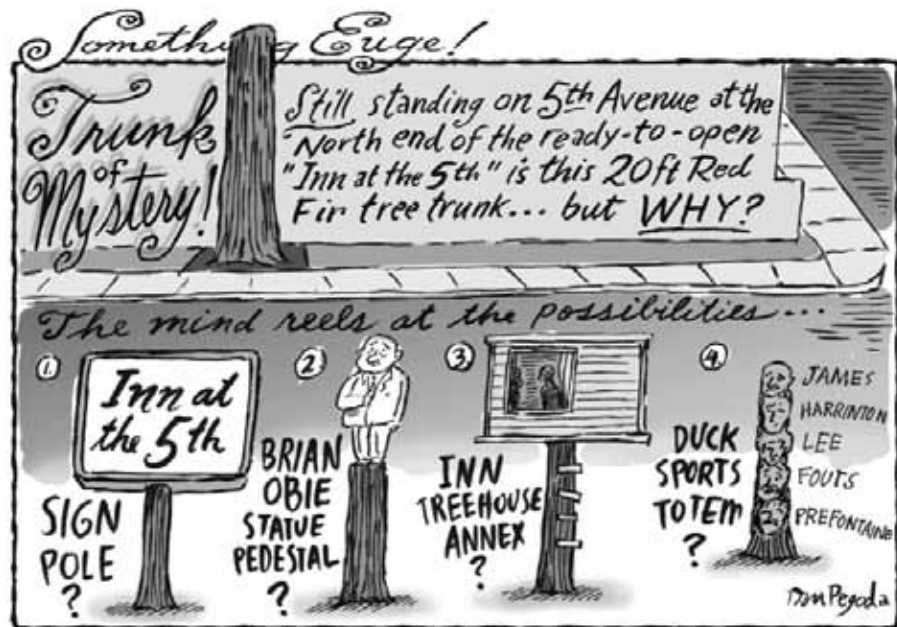 Something Euge!
Trunk
of
Mystery!
Still standing on 5th Avenue at the
North end of the ready-to-open
"Inn at the 5th" is this 20ft Red
Fir tree trunk... but WHY?
The mind reels at the possibilities...
1.
Inn at
the 5th
SIGN
POLE
?
2
BRIAN
OBIE
STATUE
PEDESTAL
?
3
INN
TREEHOUSE
ANNEX
?
4.
DUCK
SPORTS
TOTEM
?
JAMES
HARRINTON
LEE
FOUTS
PREFONTAINE
Dan Pegoda